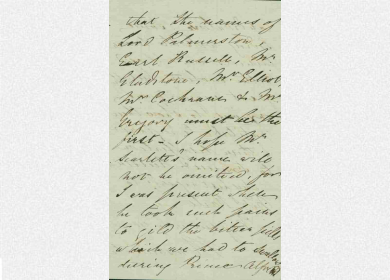 that the names of
Lord Palmerston,
Earl Russell, Mr.
Gladstone, Mr. Elliot
Mr. Cochrane & Mr.
Gregory must be the
first - I hope Mr.
Scarlett's name will
not be omitted, for
I was present when
he took such pains
to gild the bitter pill
which we had to swallow
during Prince Alfred